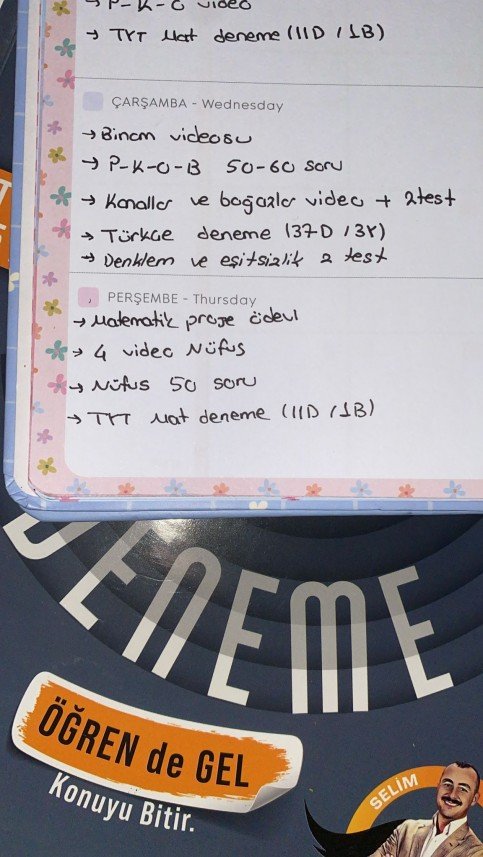 → P-K-O video
→ TYT Mat deneme (11D / 1B)
ÇARŞAMBA - Wednesday
→ Binom videosu
→ P-K-O-B 50-60 soru
→ Kanallar ve boğazlar video + 2test
→ Türkçe deneme (37D / 3Y)
→ Denklem ve eşitsizlik 2 test
PERŞEMBE - Thursday
→ Matematik proje ödevi
→ 4 video Nüfus
→ Nüfus 50 soru
→ TYT Mat deneme (11D / 1B)
DENEME
ÖĞREN de GEL
Konuyu Bitir.
SELİM